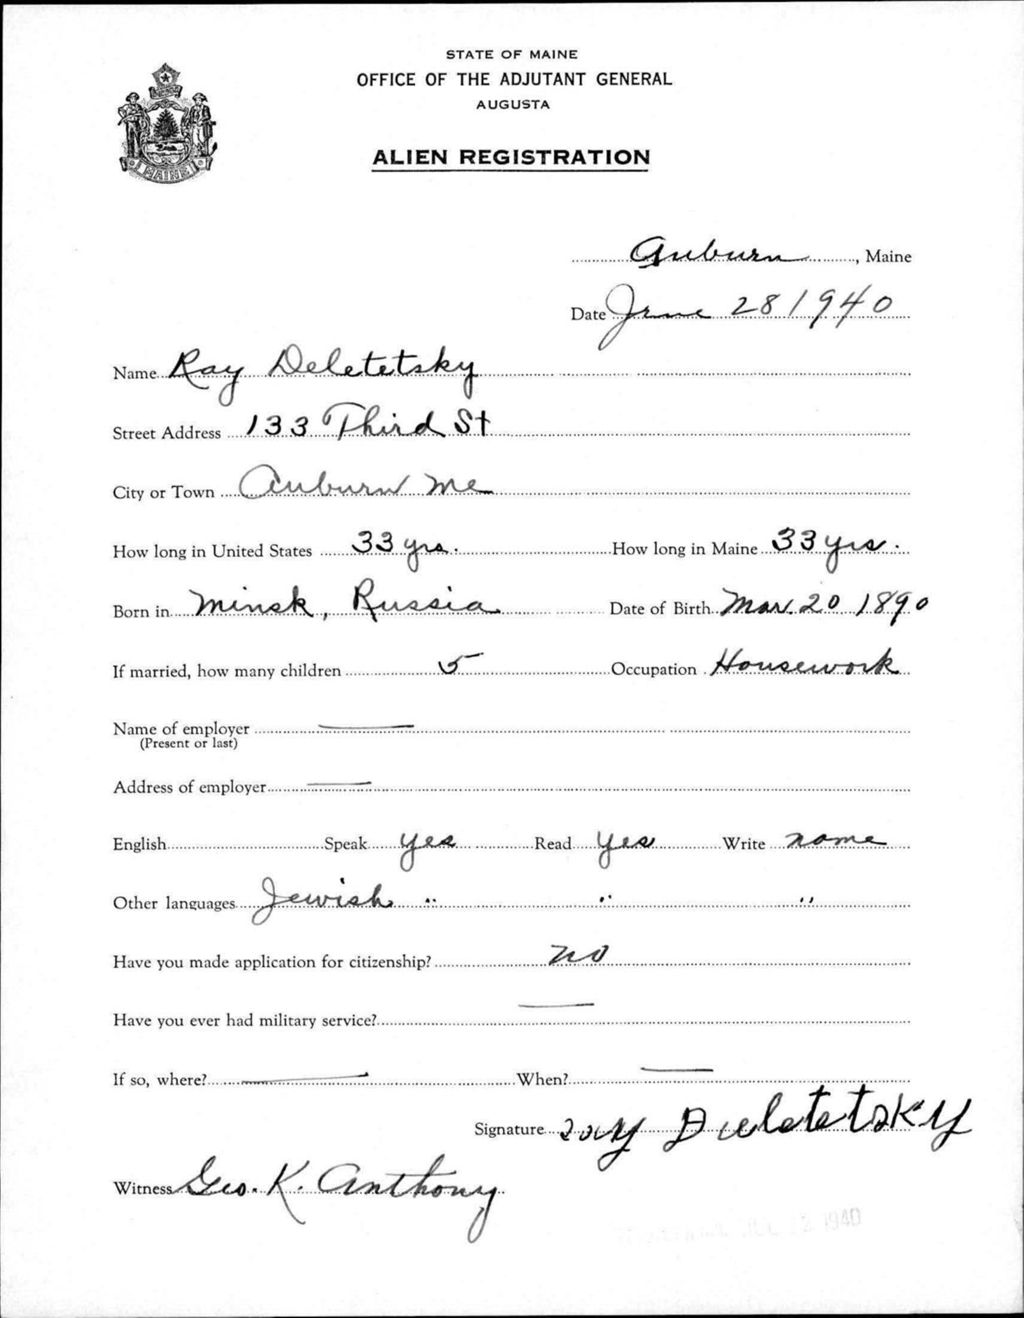 STATE OF MAINE
OFFICE OF THE ADJUTANT GENERAL
AUGUSTA
ALIEN REGISTRATION
MAINE
Auburn, Maine
Date June 28 1940
Name Ray Deletetsky
Street Address 133 Third St
City or Town Auburn Me
How long in United States 33 yrs. How long in Maine 33 yrs.
Born in Minsk, Russia Date of Birth Mar. 20 1890
If married, how many children 5 Occupation Housework
Name of employer
(Present or last)
Address of employer
English Speak yes Read yes Write name
Other languages Jewish " " "
Have you made application for citizenship? no
Have you ever had military service?
If so, where? When?
Signature Ray Deletetsky
Witness Geo. K. Anthony
1940